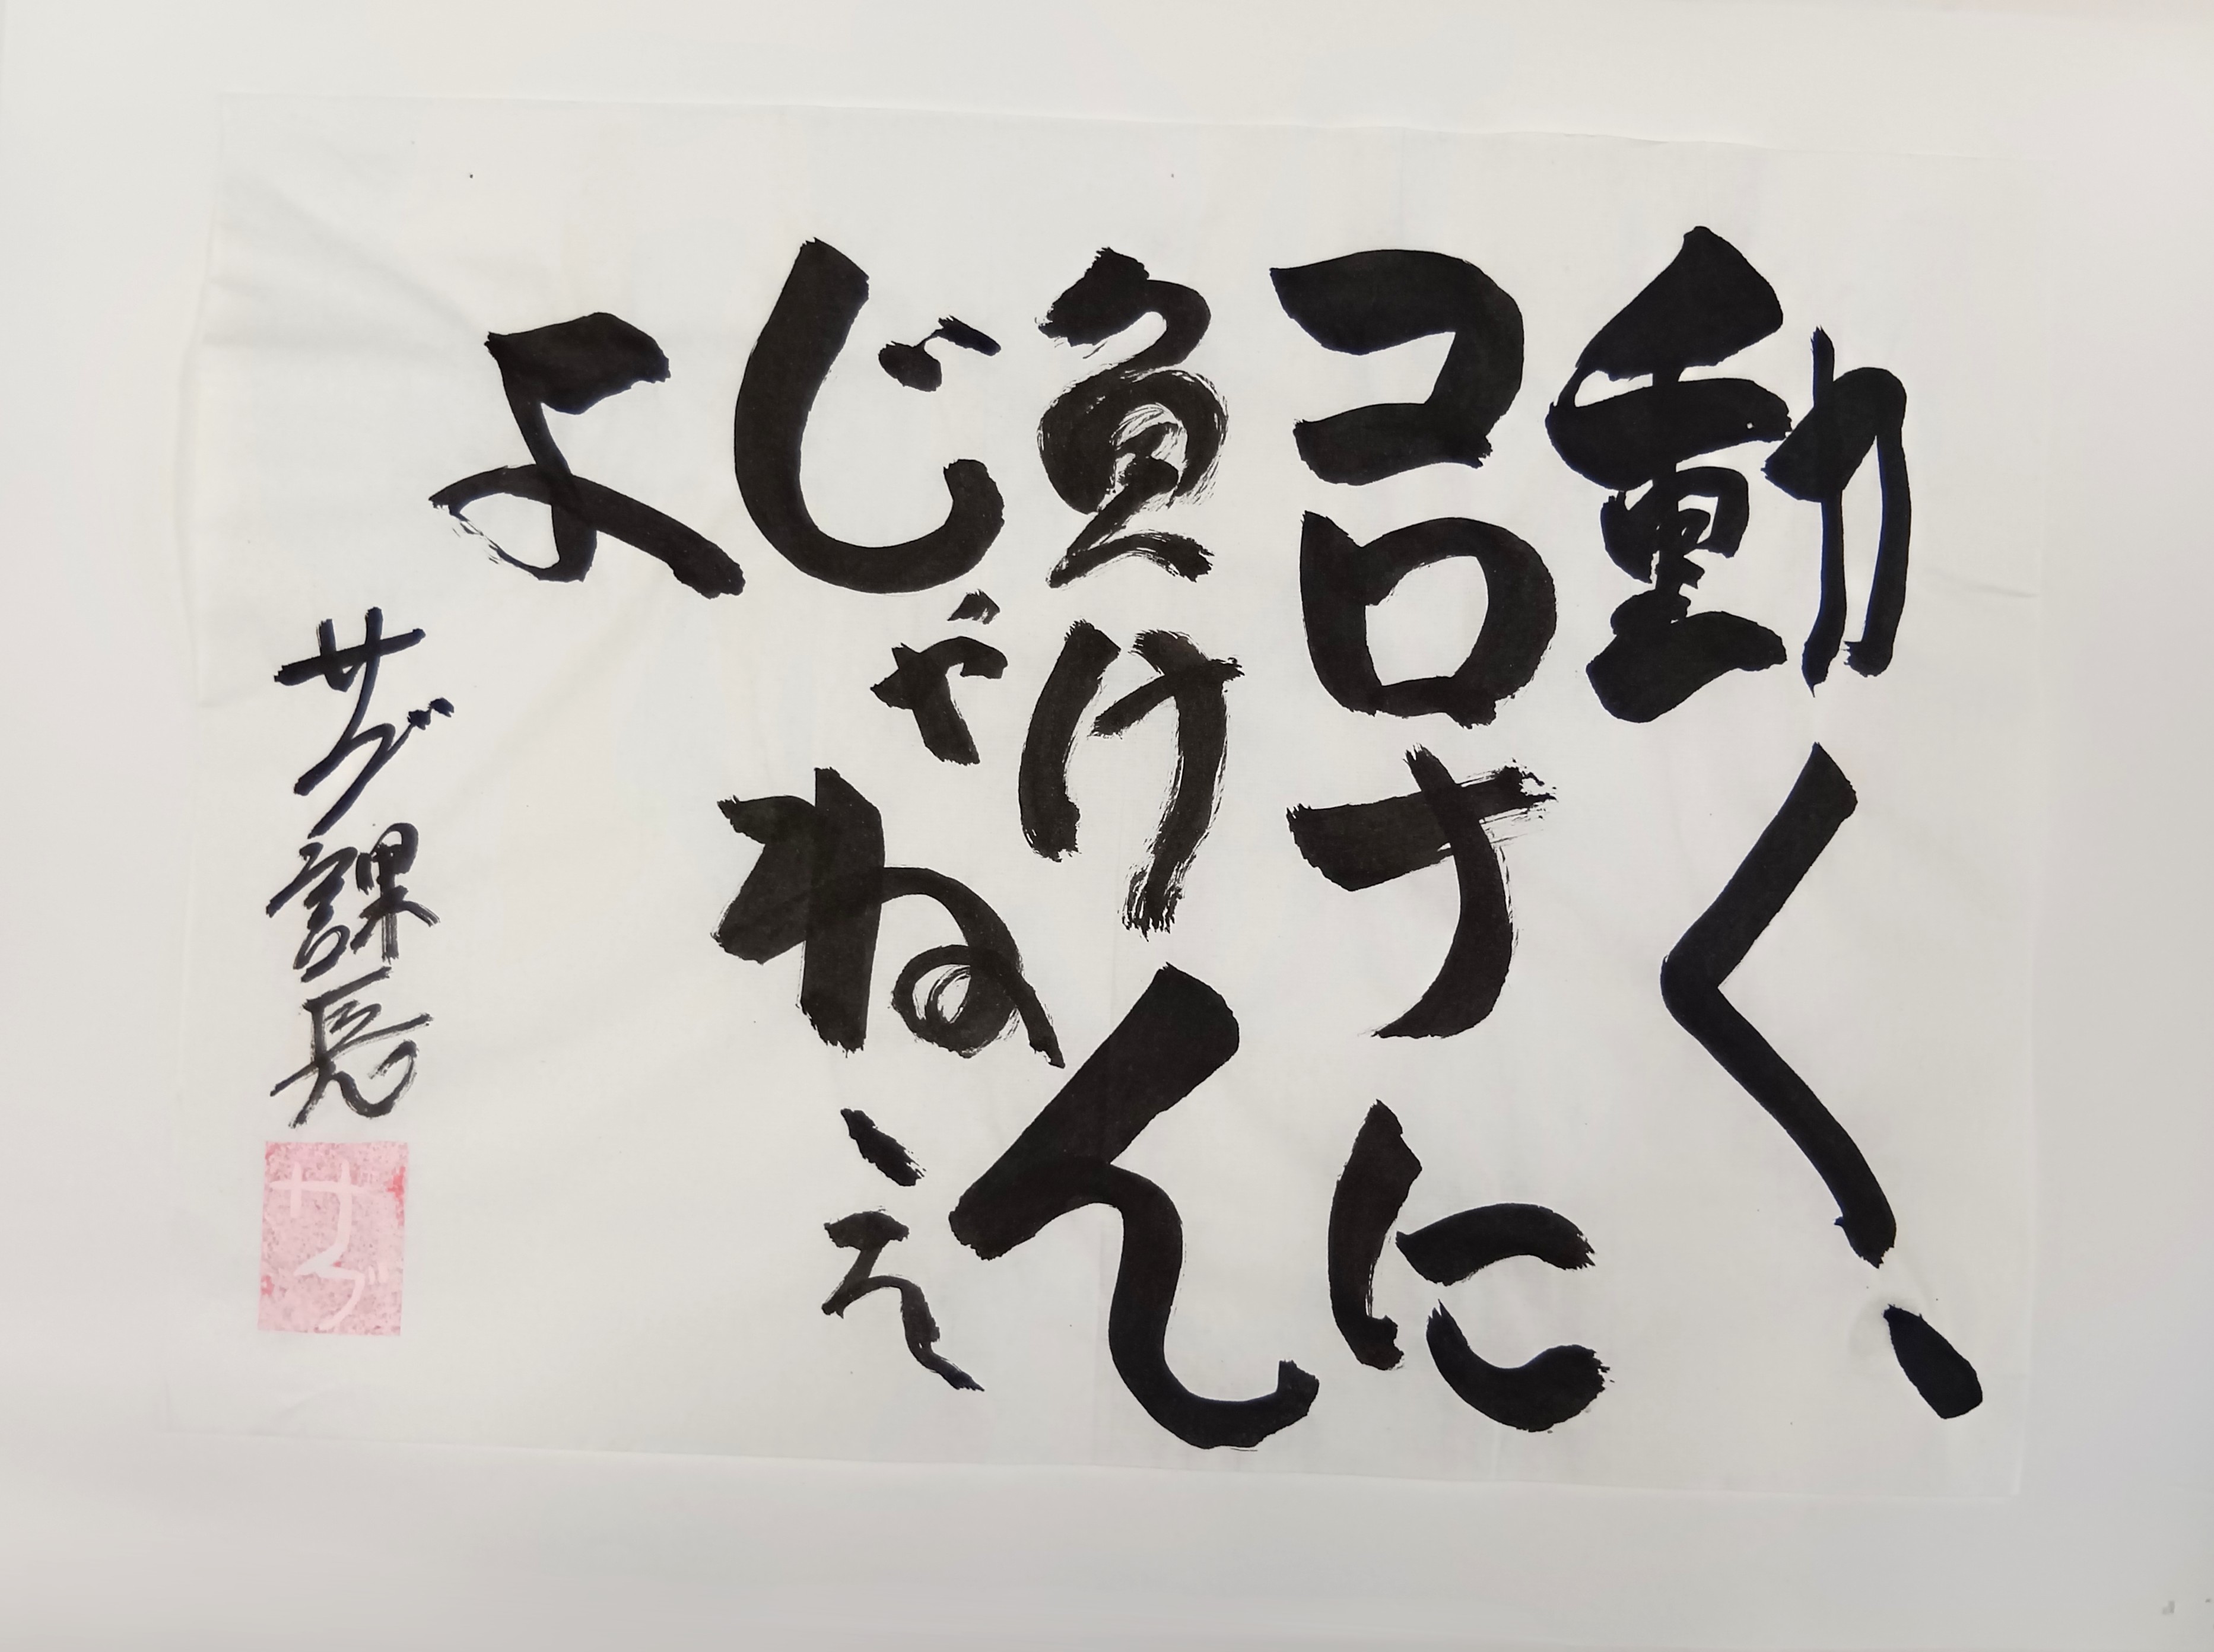 動く、
コロナに
負けん
じゃねえ
よ
サブ課長
サブ